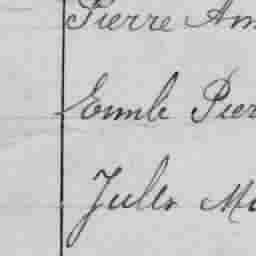 Pierre Am
Emile Pier
Jules Ma